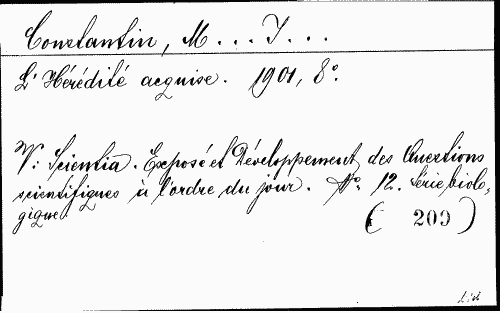 Constantin, M... J...
L'Hérédité acquise. 1901, 8°.
V: Scientia. Exposé et Développement des Questions
scientifiques à l'ordre du jour. N°. 12. Série biolo-
gique.
( 209 )